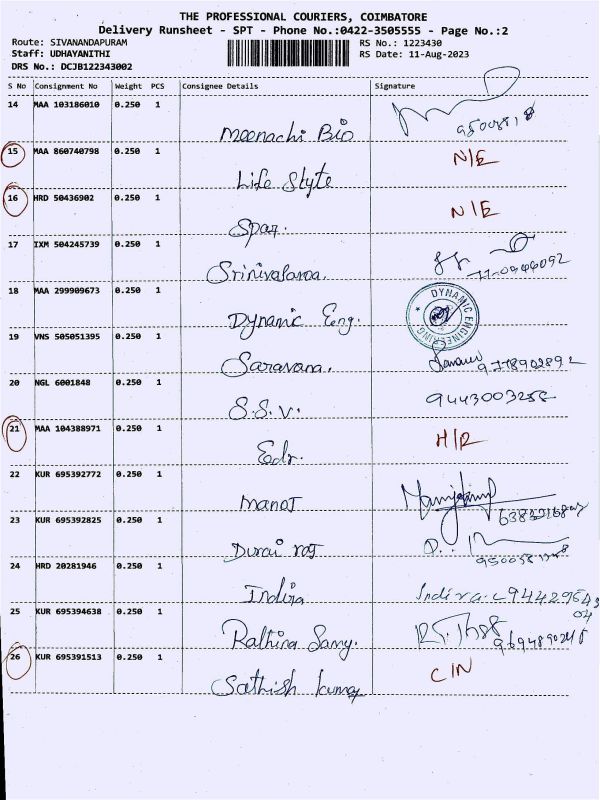 THE PROFESSIONAL COURIERS, COIMBATORE
Delivery Runsheet - SPT - Phone No.:0422-3505555 - Page No.:2
Route: SIVANANDAPURAM RS No.: 1223430
Staff: UDHAYANITHI RS Date: 11-Aug-2023
DRS No.: DCJB122343002
S No Consignment No Weight PCS Consignee Details Signature
14 MAA 103186010 0.250 1
Meenachi Bio
15 MAA 860740798 0.250 1 N/E
Life Style
16 HRD 50436902 0.250 1 N/E
Spar.
17 IXM 504245739 0.250 1
Srinivalaroa.
18 MAA 299909673 0.250 1 DYNAMIC ENGINEERING
Dynamic Eng.
19 VNS 505051395 0.250 1
Saravana. 9778902892
20 NGL 6001848 0.250 1 9443003258
S.S.V.
21 MAA 104388971 0.250 1 H/R
Edr.
22 KUR 695392772 0.250 1
Manoj
23 KUR 695392825 0.250 1
Durai raj
24 HRD 20281946 0.250 1
Indira Indira.c 9442954304
25 KUR 695394638 0.250 1
Rathina Samy. 9694890248
26 KUR 695391513 0.250 1 C/N
Sathish kumar